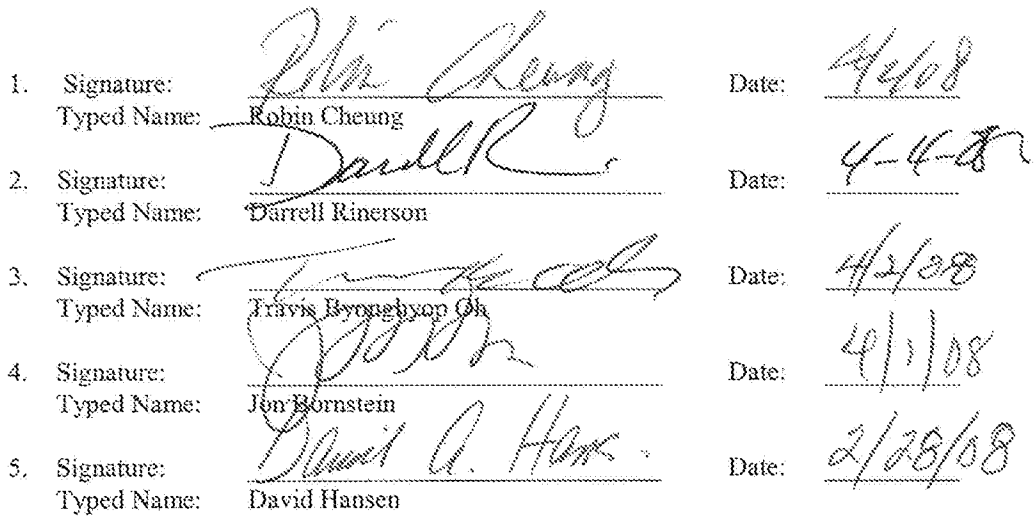 1. Signature: Robin Cheung Date: 4/2/08
Typed Name: Robin Cheung
2. Signature: Darrell R Date: 4-4-08
Typed Name: Darrell Rinerson
3. Signature: Date: 4/2/08
Typed Name: Travis Byonghyop Oh
4. Signature: Date: 4/1/08
Typed Name: Jon Bornstein
5. Signature: David A. Hansen Date: 2/28/08
Typed Name: David Hansen